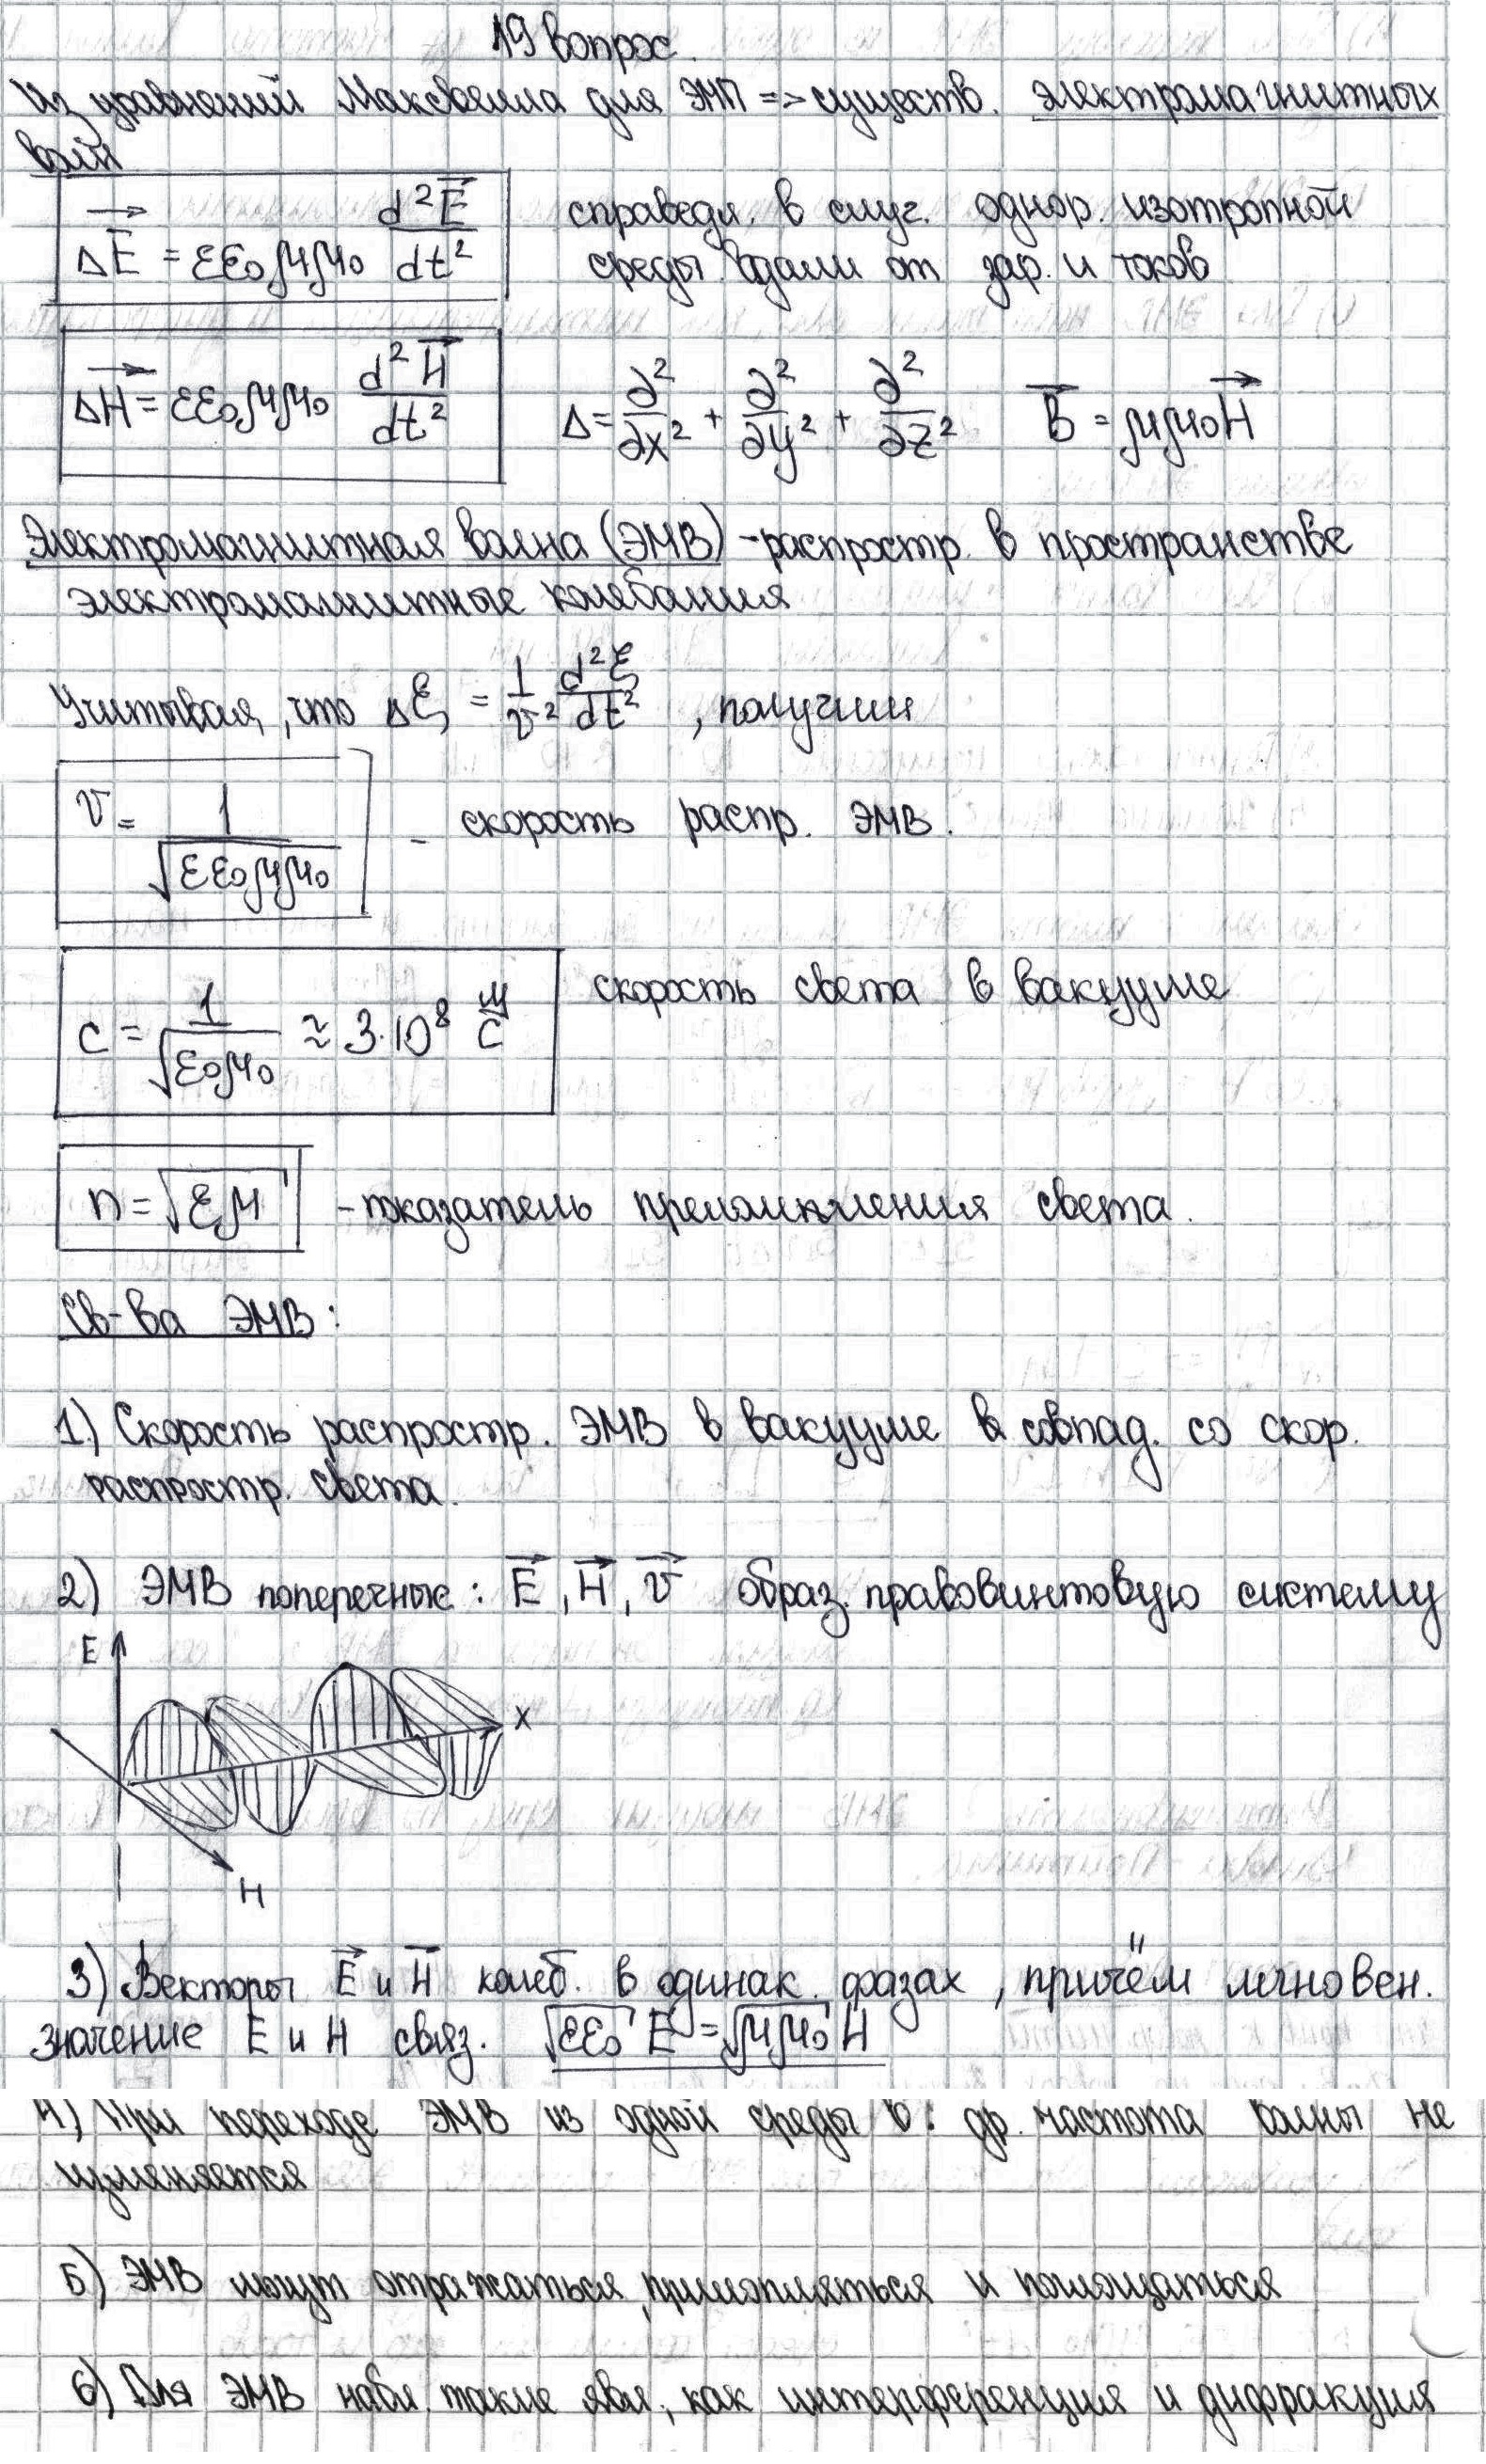 19 вопрос.
Из уравнений Максвелла для ЭМП => существ. электромагнитных
волн
ΔE⃗ = εε₀μμ₀ d²E⃗/dt² справедл. в случ. однор. изотропной
среды вдали от зар. и токов
ΔH⃗ = εε₀μμ₀ d²H⃗/dt² Δ = ∂²/∂x² + ∂²/∂y² + ∂²/∂z² B⃗ = μμ₀H⃗
Электромагнитная волна (ЭМВ) - распростр. в пространстве
электромагнитные колебания
Учитывая, что Δξ = 1/v² d²ξ/dt², получим
v = 1/√(εε₀μμ₀) - скорость распр. ЭМВ.
c = 1/√(ε₀μ₀) ≈ 3·10⁸ м/с скорость света в вакууме
n = √(εμ) - показатель преломления света.
Св-ва ЭМВ:
1.) Скорость распростр. ЭМВ в вакууме совпад. со скор.
распростр. света.
2) ЭМВ поперечные: E⃗, H⃗, v⃗ образ. правовинтовую систему
E
x
H
3) Векторы E⃗ и H⃗ колеб. в одинак. фазах, причём мгновен.
значение E и H связ. √(εε₀) E = √(μμ₀) H
4) При переходе ЭМВ из одной среды в др. частота волны не
изменяется
5) ЭМВ могут отражаться, преломляться и поглощаться
6) Для ЭМВ набл. такие явл., как интерференция и дифракция